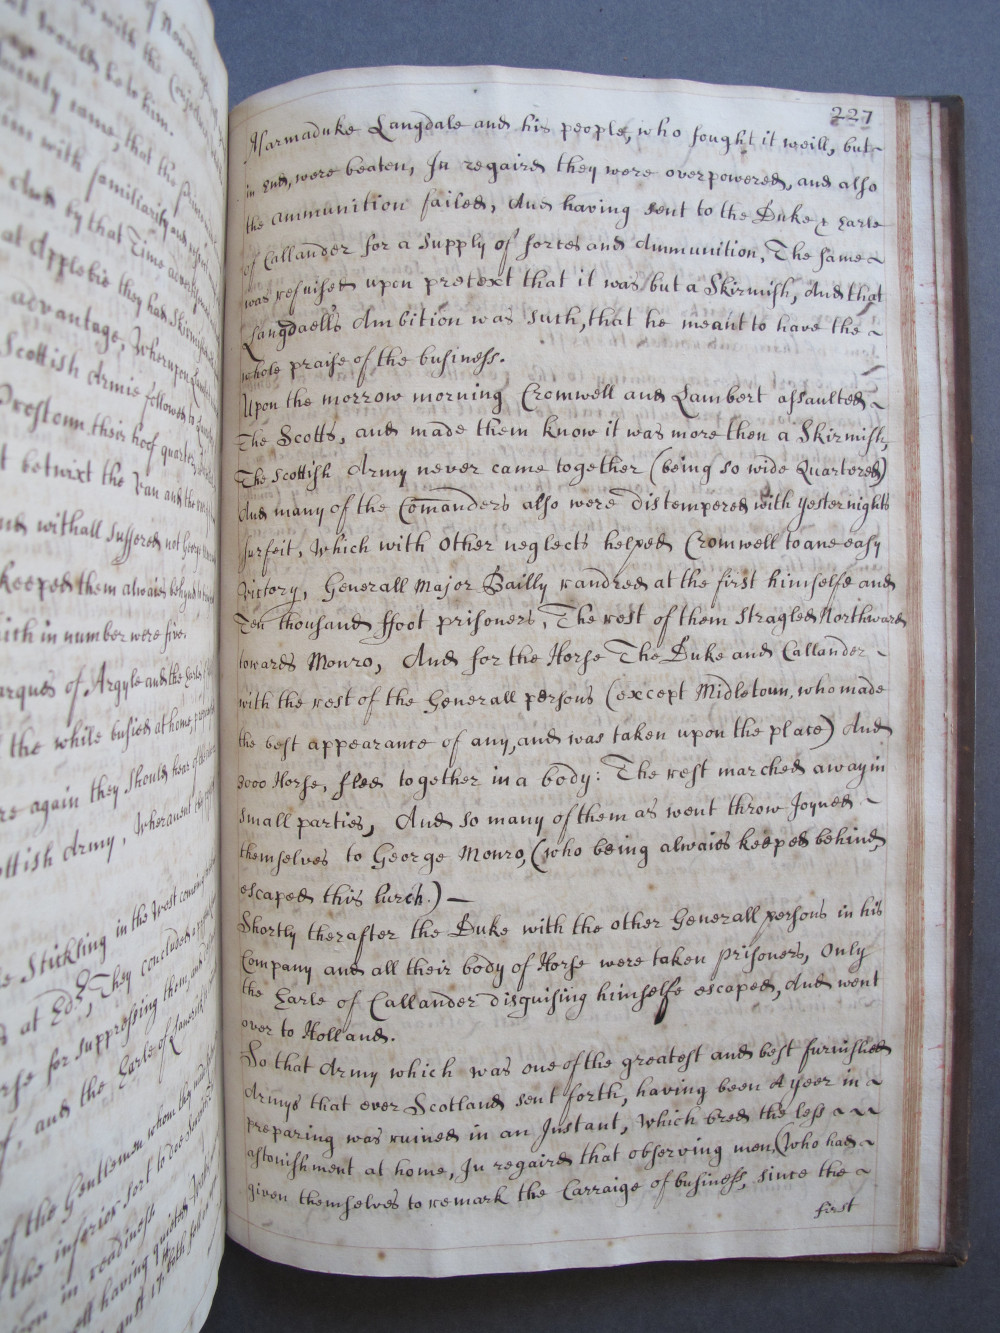 of
with the
would be to him.
County came, that the
with familiarity and
And by that Time
at Applebie they had Skirmished
advantage, Wherupon
Scottish Armie followed
Prestoun their hoof quarter
betwixt the Van and the
and withall Suffered not George
keeped them alwaies behynd
which in number were five.
Marques of Argyle and the Earle
the while busied at home,
again they Should hear of
Scottish Army, Wherament they
Stickling in the West
at Edr, They concluded
for suppressing them, and
and the Earle of Lanerick
of the Gentlemen whom they
the inferior Sort to doe
in readiness
having quieted
August 17 both
227
Marmaduke Langdale and his people, who fought it weill, but~
in End, were beaten, In regaird they were overpowered, and also
the ammunition failed, And having sent to the Duke & Earle
of Callander for a Supply of forces and Ammunition, The same~
was refuised upon pretext that it was but a Skirmish, And that
Langdaell's Ambition was Such, that he meant to have the ~
whole praise of the business.
Upon the morrow morning Cromwell and Lambert assaulted ~
The Scotts, and made them know it was more then a Skirmish,
The Scottish Army never came together (being so wide Quartered)
And many of the Comanders also were distempered with yesternights
surfeit, Which with other neglects helped Cromwell to ane easy
Victory, Generall Major Bailly randred at the first himselfe and
Ten thousand ffoot prisoners, The rest of them Stragled Northward
towards Monro, And for the Horse The Duke and Callander ~
with the rest of the Generall persons (except Midletoun, who made
the best appearance of any, and was taken upon the place) And
3000 Horse, fled together in a body: The rest marched away in
small parties, And so many of them as went throw Joyned ~
themselves to George Monro, (who being alwaies keeped behind,
escaped this lurch.) —
Shortly therafter the Duke with the other Generall persons in his
Company and all their body of Horse were taken prisoners, Only
the Earle of Callander disguising himselfe escaped, And went
over to Holland.
So that Army which was one of the greatest and best furnished
Armys that ever Scotland sent forth, having been A year in ~
preparing was ruined in an Instant, Which bred the less ~ ~ ~
astonishment at home, In regaird that observing men, (who had ~
given themselves to remark the Carraige of business, since the ~
first